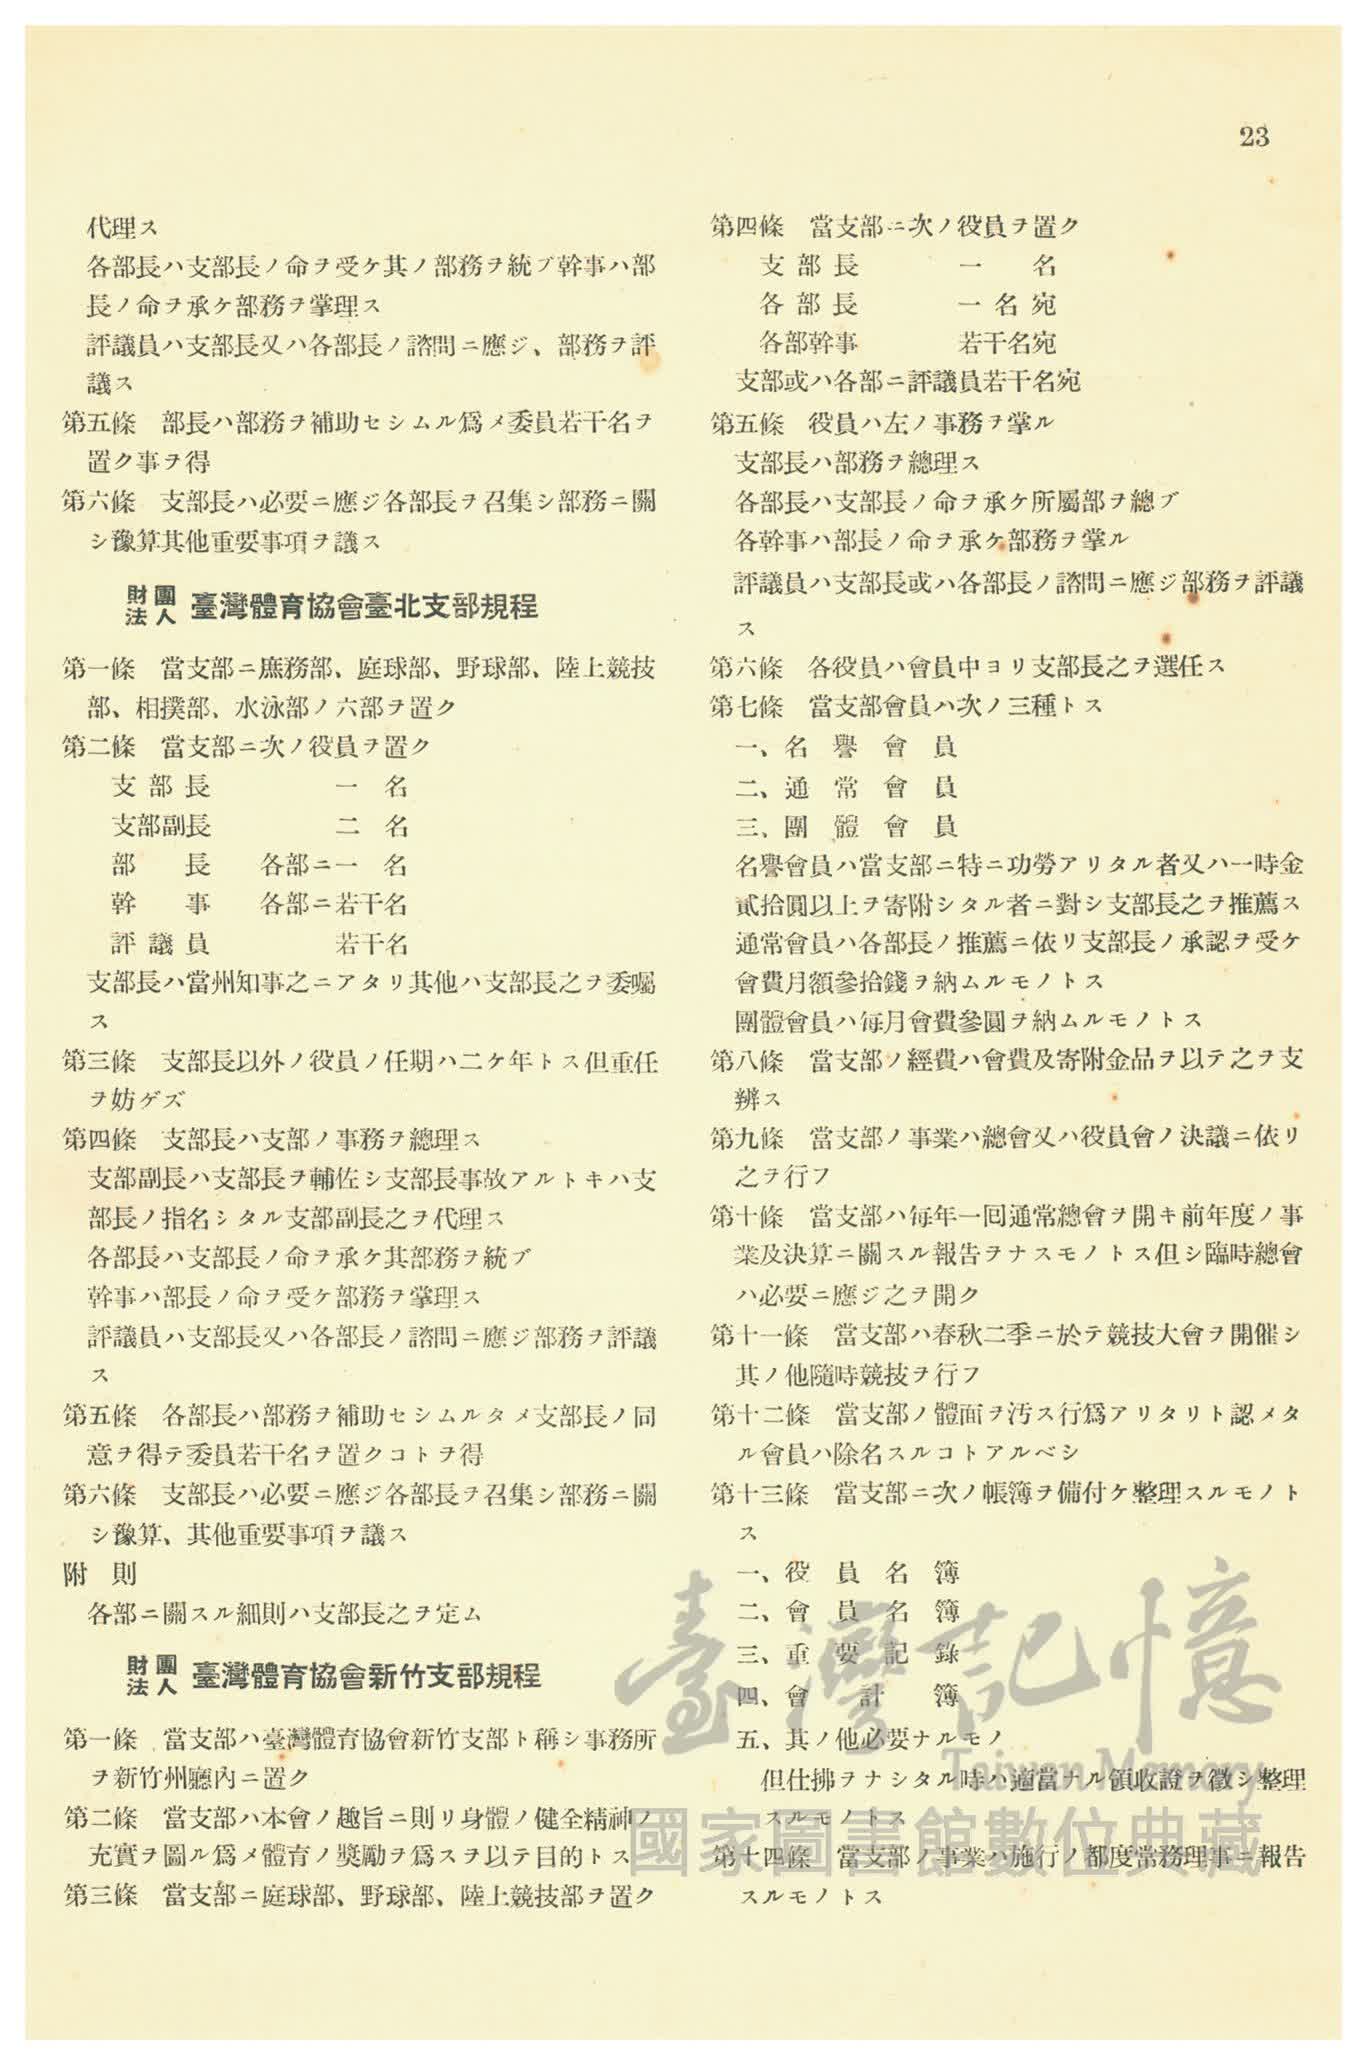 23
代理ス
各部長ハ支部長ノ命ヲ受ケ其ノ部務ヲ統ブ幹事ハ部
長ノ命ヲ承ケ部務ヲ掌理ス
評議員ハ支部長又ハ各部長ノ諮問ニ應ジ、部務ヲ評
議ス
第五條　部長ハ部務ヲ補助セシムル爲メ委員若干名ヲ
置ク事ヲ得
第六條　支部長ハ必要ニ應ジ各部長ヲ召集シ部務ニ關
シ豫算其他重要事項ヲ議ス
財團法人 臺灣體育協會臺北支部規程
第一條　當支部ニ庶務部、庭球部、野球部、陸上競技
部、相撲部、水泳部ノ六部ヲ置ク
第二條　當支部ニ次ノ役員ヲ置ク
支部長　一名
支部副長　二名
部長　各部ニ一名
幹事　各部ニ若干名
評議員　若干名
支部長ハ當州知事之ニアタリ其他ハ支部長之ヲ委囑
ス
第三條　支部長以外ノ役員ノ任期ハ二ケ年トス但重任
ヲ妨ゲズ
第四條　支部長ハ支部ノ事務ヲ總理ス
支部副長ハ支部長ヲ輔佐シ支部長事故アルトキハ支
部長ノ指名シタル支部副長之ヲ代理ス
各部長ハ支部長ノ命ヲ承ケ其部務ヲ統ブ
幹事ハ部長ノ命ヲ受ケ部務ヲ掌理ス
評議員ハ支部長又ハ各部長ノ諮問ニ應ジ部務ヲ評議
ス
第五條　各部長ハ部務ヲ補助セシムルタメ支部長ノ同
意ヲ得テ委員若干名ヲ置クコトヲ得
第六條　支部長ハ必要ニ應ジ各部長ヲ召集シ部務ニ關
シ豫算、其他重要事項ヲ議ス
附　則
各部ニ關スル細則ハ支部長之ヲ定ム
財團法人 臺灣體育協會新竹支部規程
第一條　當支部ハ臺灣體育協會新竹支部ト稱シ事務所
ヲ新竹州廳內ニ置ク
第二條　當支部ハ本會ノ趣旨ニ則リ身體ノ健全精神ノ
充實ヲ圖ル爲メ體育ノ獎勵ヲ爲スヲ以テ目的トス
第三條　當支部ニ庭球部、野球部、陸上競技部ヲ置ク
第四條　當支部ニ次ノ役員ヲ置ク
支部長　一名
各部長　一名宛
各部幹事　若干名宛
支部或ハ各部ニ評議員若干名宛
第五條　役員ハ左ノ事務ヲ掌ル
支部長ハ部務ヲ總理ス
各部長ハ支部長ノ命ヲ承ケ所屬部ヲ總ブ
各幹事ハ部長ノ命ヲ承ケ部務ヲ掌ル
評議員ハ支部長或ハ各部長ノ諮問ニ應ジ部務ヲ評議
ス
第六條　各役員ハ會員中ヨリ支部長之ヲ選任ス
第七條　當支部會員ハ次ノ三種トス
一、名譽會員
二、通常會員
三、團體會員
名譽會員ハ當支部ニ特ニ功勞アリタル者又ハ一時金
貳拾圓以上ヲ寄附シタル者ニ對シ支部長之ヲ推薦ス
通常會員ハ各部長ノ推薦ニ依リ支部長ノ承認ヲ受ケ
會費月額參拾錢ヲ納ムルモノトス
團體會員ハ每月會費參圓ヲ納ムルモノトス
第八條　當支部ノ經費ハ會費及寄附金品ヲ以テ之ヲ支
辨ス
第九條　當支部ノ事業ハ總會又ハ役員會ノ決議ニ依リ
之ヲ行フ
第十條　當支部ハ每年一囘通常總會ヲ開キ前年度ノ事
業及決算ニ關スル報告ヲナスモノトス但シ臨時總會
ハ必要ニ應ジ之ヲ開ク
第十一條　當支部ハ春秋二季ニ於テ競技大會ヲ開催シ
其ノ他隨時競技ヲ行フ
第十二條　當支部ノ體面ヲ汚ス行爲アリタリト認メタ
ル會員ハ除名スルコトアルベシ
第十三條　當支部ニ次ノ帳簿ヲ備付ケ整理スルモノト
ス
一、役員名簿
二、會員名簿
三、重要記錄
四、會計簿
五、其ノ他必要ナルモノ
但仕拂ヲナシタル時ハ適當ナル領收證ヲ徵シ整理
スルモノトス
第十四條　當支部ノ事業ハ施行ノ都度常務理事ニ報告
スルモノトス
臺灣記憶
Taiwan Memory
國家圖書館數位典藏